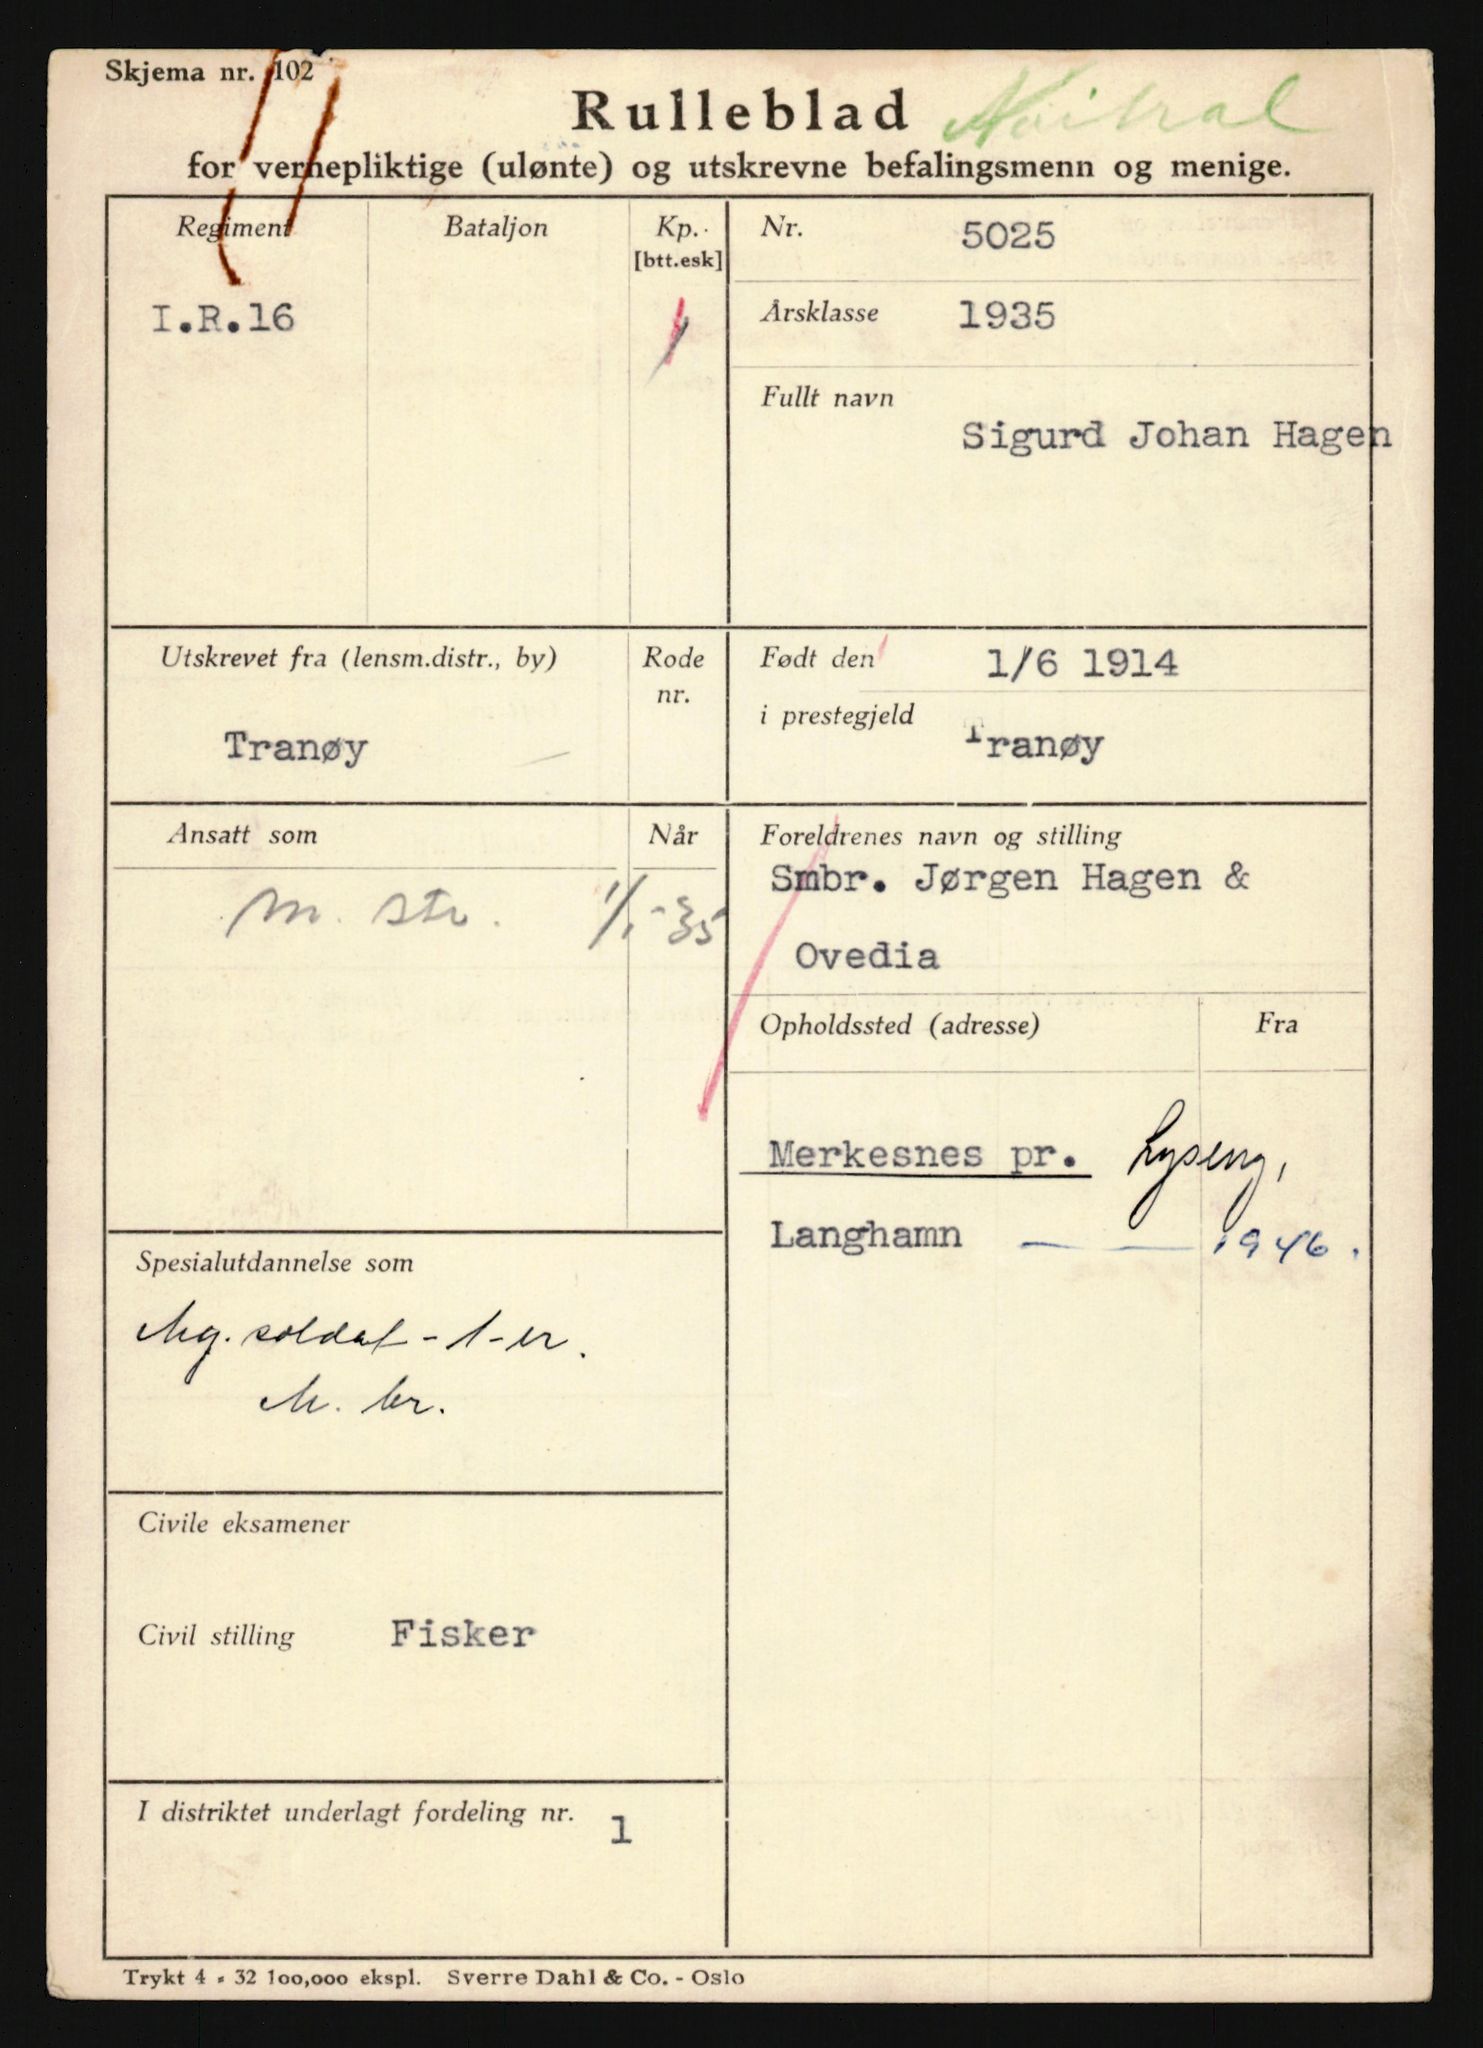 Skjema nr. 102
Rulleblad Nøitral
for vernepliktige (ulønte) og utskrevne befalingsmenn og menige.
Regiment Bataljon Kp.
[btt.esk]
I.R.16
Nr. 5025
Årsklasse 1935
Fullt navn
Sigurd Johan Hagen
Utskrevet fra (lensm.distr., by) Rode
nr.
Tranøy
Født den 1/6 1914
i prestegjeld Tranøy
Ansatt som Når
m. str. 1/1-35
Foreldrenes navn og stilling
Smbr. Jørgen Hagen &
Ovedia
Opholdssted (adresse) Fra
Merkesnes pr. Lyseng,
Langhamn — — 1946.
Spesialutdannelse som
Mg. soldat - 1-er.
M. br.
Civile eksamener
Civil stilling Fisker
I distriktet underlagt fordeling nr. 1
Trykt 4 - 32 100,000 ekspl. Sverre Dahl & Co. - Oslo